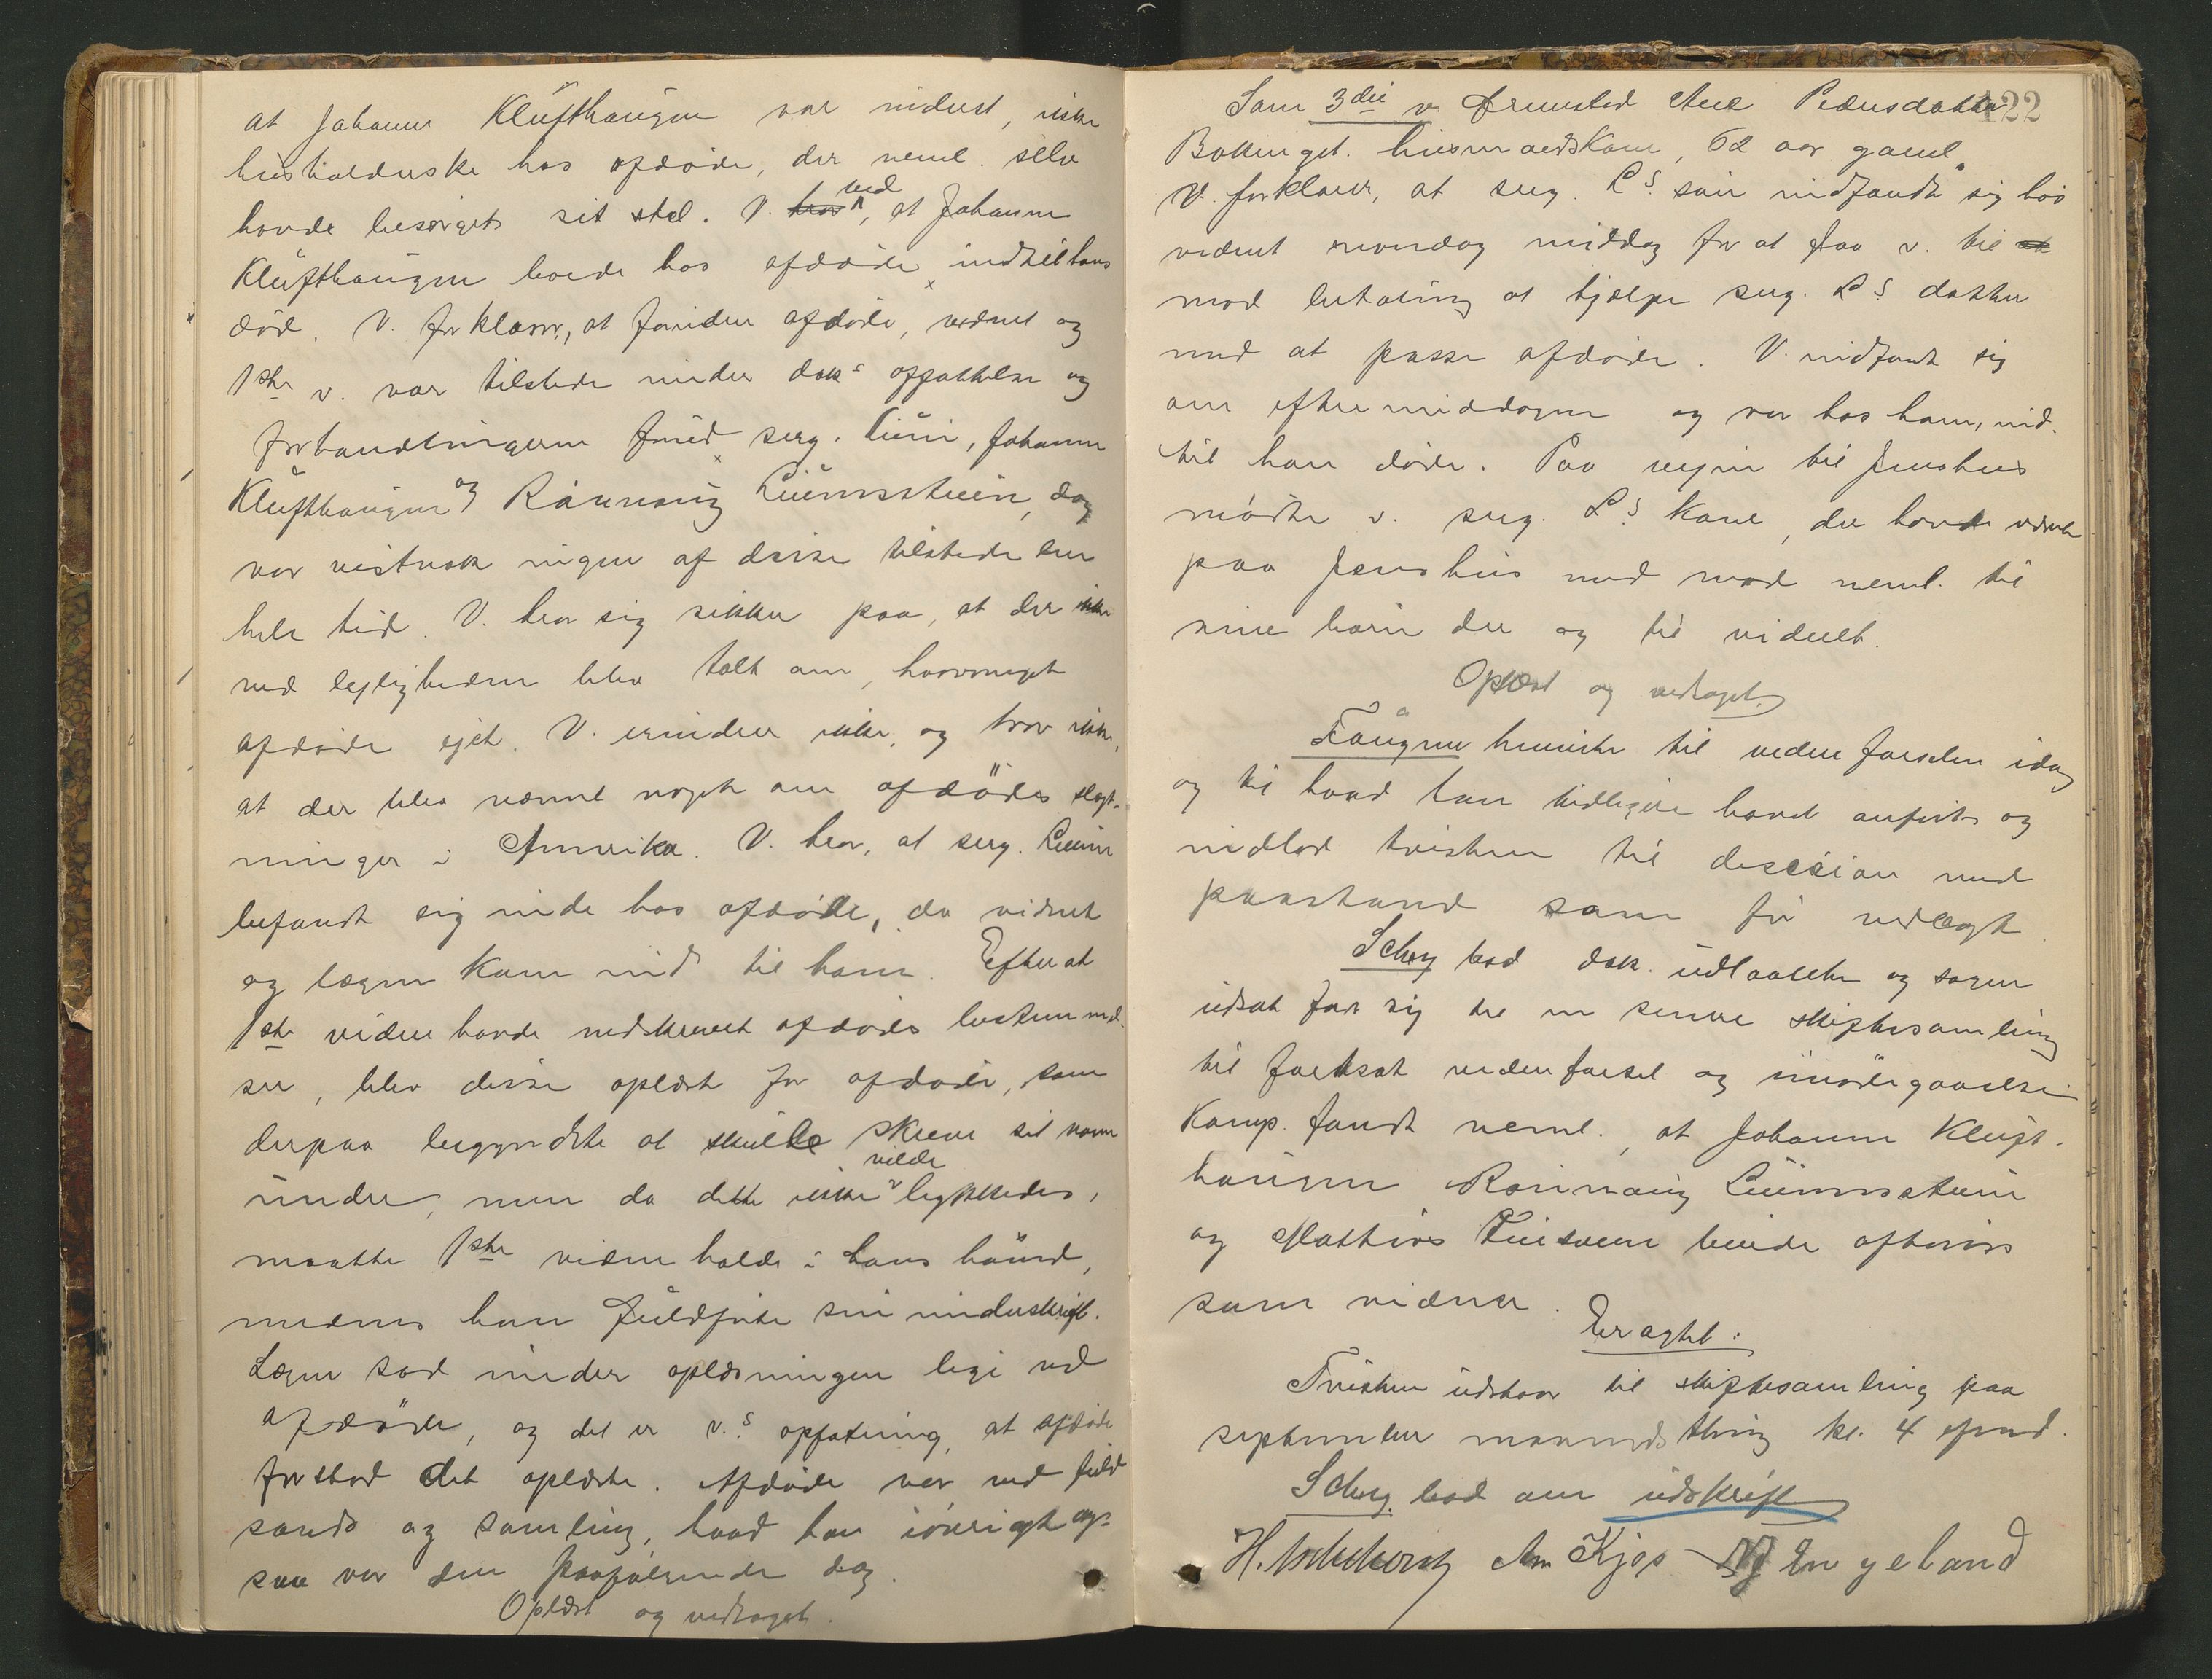 at Johanne Klüfthaugen var indust, ikke
husholderske hos afdøde, der neml. selv
havde besørget sit stel. V. tror ved, at Johanne
Klüfthaugen boede hos afdøde indtil hans
død. V. forklarer, at foruden afdøde, vidnet og
1ste v. var tilstede under doks affattelse og
forhandlingerne forud serg. Lium, Johanne
Klüfthaugen og Rønnaug Liumsstuen, dog
var vistnok ingen af disse tilstede den
hele tid. V. tror sig sikker paa, at der ikke
ved leiligheden blev talt om, hvormeget
afdøde ejet. V. erindrer ikke, og tror ikke,
at der blev nævnt noget om afdødes slægt-
ninger i Amerika. V. tror, at serg. Lium
befandt sig inde hos afdøde, da vidnet
og lægen kom ind til ham. Efterat
1ste vidne havde nedskrevet afdødes bestemmel-
ser, blev disse oplæst for afdøde, som
derpaa begyndte at skulle skrive sit navn
under, men da dette ikke vilde lykkedes,
maatte 1ste vidne holde i hans haand,
medens han fuldførte sin underskrift.
Lægen sad under oplæsningen lige ved
afdøde, og det er v.s opfatning, at afdøde
forstod det oplæste. Afdøde var ved fuld
sands og samling, hvad han iøvrigt og-
saa var den paafølgende dag.
Oplæst og vedtaget.
422
Som 3die v. fremstod Ane Pedersdatter
Bakken gvt. husmandskone, 62 aar gammel.
V. forklarer, at serg. L.s søn indfandt sig hos
vidnet mandag middag for at faa v. til at
mod betaling at hjælpe serg. L.s datter
med at passe afdøde. V. indfandt sig
om eftermiddagen og var hos ham, ind-
til han døde. Paa vejen til Jenshus
mødte v. serg. L.s kone, der havde været
paa Jenshus med mad neml. til
sine børn der og til vidnet.
Oplæst og vedtaget.
Faugner henviste til vidneførselen idag
og til hvad han tidligere havde anført og
indlod tvisten til decision med
paastand som før nedlagt.
Schøy bad dok. udlaante og sagen
udsat for sig til en senere skiftesamling
til fortsat vidneførsel og imødegaaelse.
Komp. fandt neml., at Johanne Klüft-
haugen Rønnaug Liumsstuen
og Mathias burde afhøres
som vidner.
Eragtet:
Tvisten udstaar til skiftesamling paa
september maanedsthing kl. 4 efmd.
Schøy bad om udskrift
H. Am Kjos Engeland